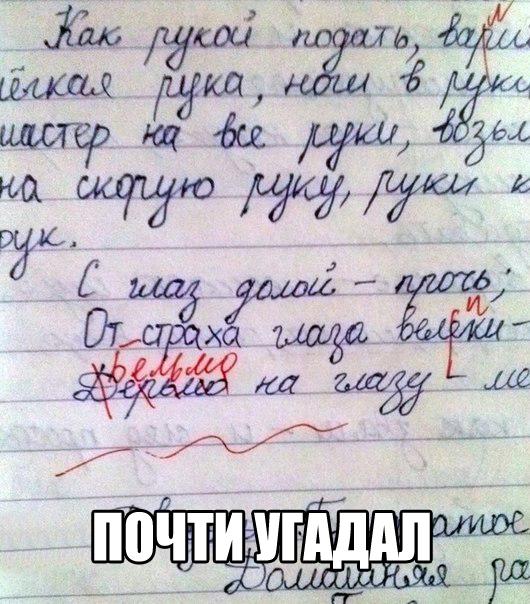 Как рукой подать, вари
лёгкая рука, ноги в руки
мастер на все руки, возьм
на скорую руку, руки к
рук.
С глаз долой – прочь;
От страха глаза велеки –
бельмо
Дерьмо на глазу – ме
ПОЧТИ УГАДАЛ
Домашняя ра